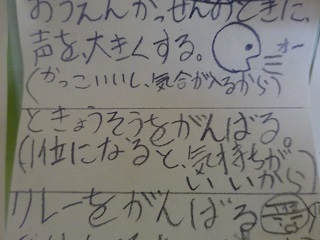 おうえんがっせんのときに、
声を、大きくする。 オー
(かっこいいし、気合が入るから)
ときょうそうをがんばる。
(1位になると、気持ちが
いいから)
リレーをがんばる